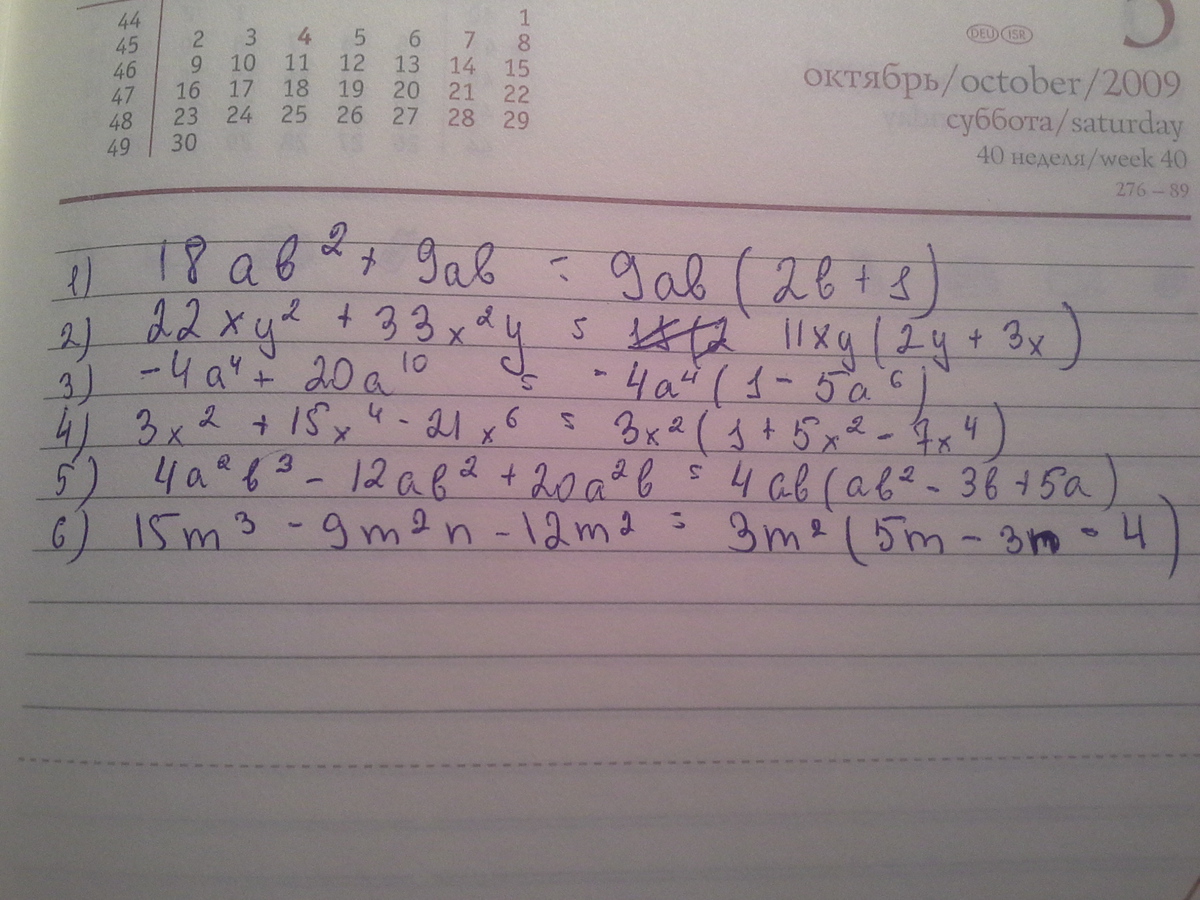 44 1
45 2 3 4 5 6 7 8
46 9 10 11 12 13 14 15
47 16 17 18 19 20 21 22
48 23 24 25 26 27 28 29
49 30
DEU ISR
октябрь/october/2009
суббота/saturday
40 неделя/week 40
276 – 89
1) 18ab² + 9ab = 9ab(2b + 1)
2) 22xy² + 33x²y = 11xy(2y + 3x)
3) -4a⁴ + 20a¹⁰ = -4a⁴(1 - 5a⁶)
4) 3x² + 15x⁴ - 21x⁶ = 3x²(1 + 5x² - 7x⁴)
5) 4a²b³ - 12ab² + 20a²b = 4ab(ab² - 3b + 5a)
6) 15m³ - 9m²n - 12m² = 3m²(5m - 3n - 4)